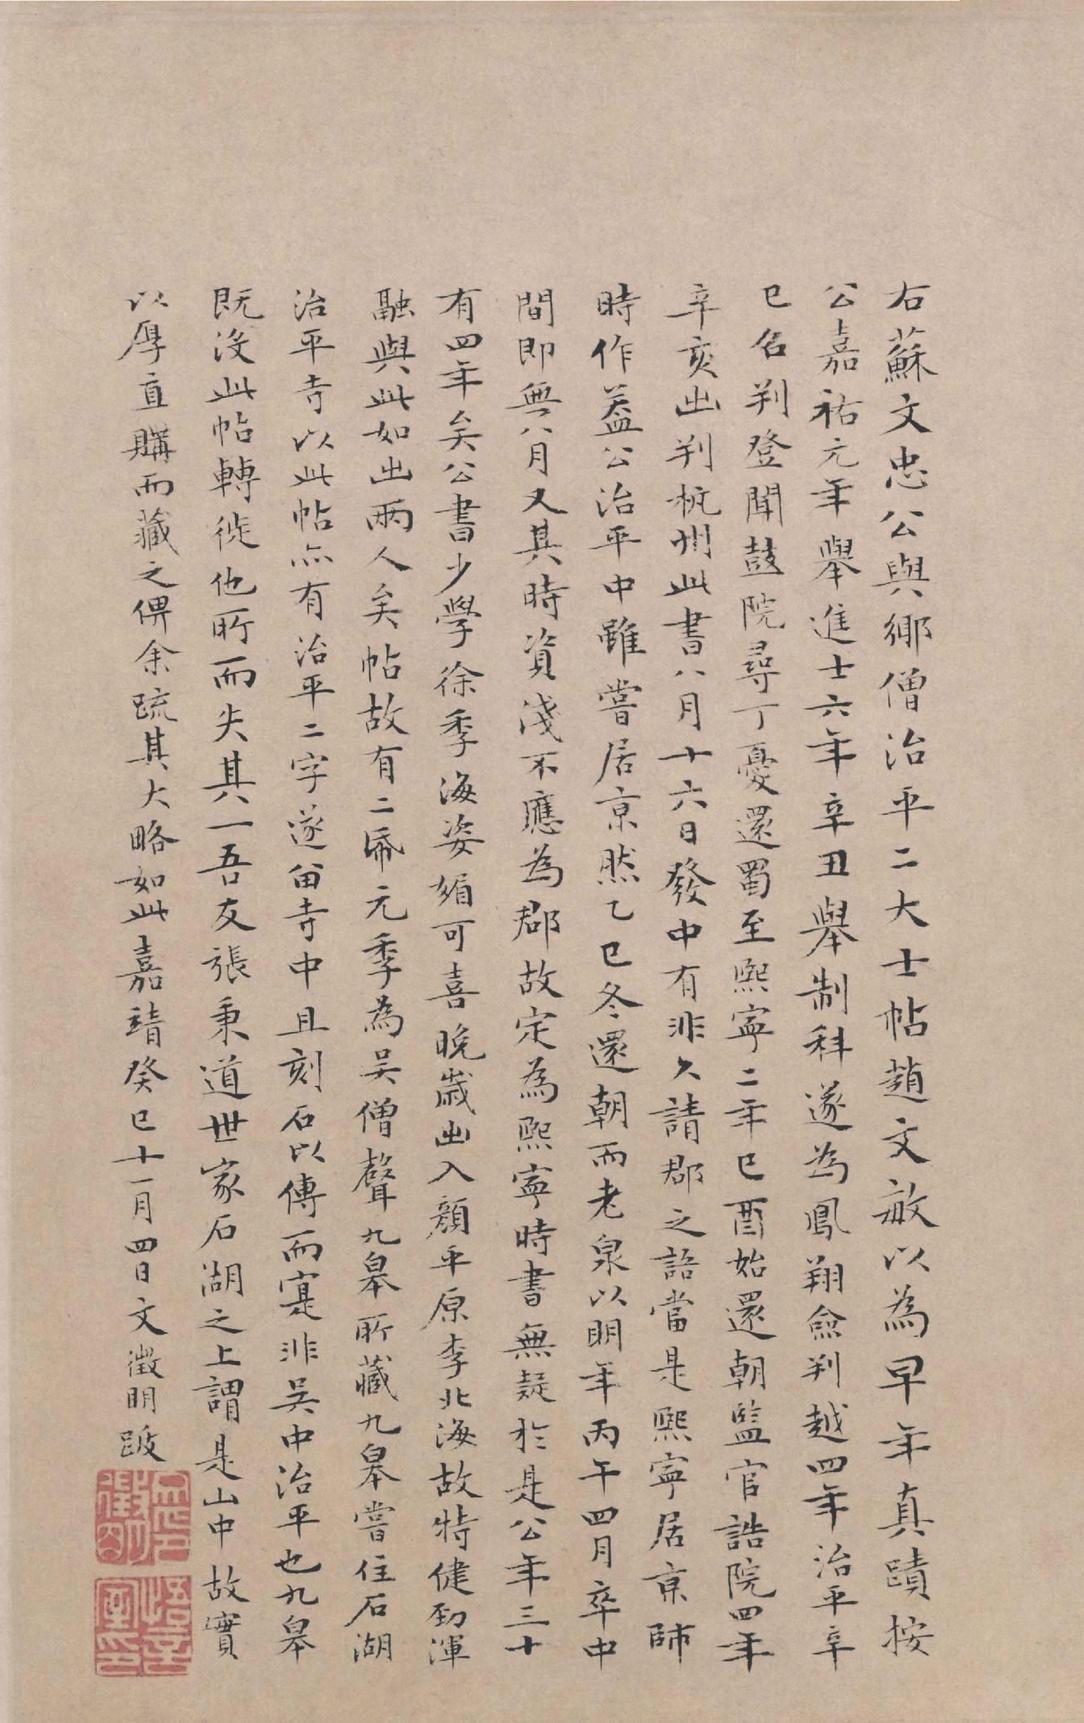 右蘇文忠公與鄉僧治平二大士帖趙文敏以為早年真蹟按
公嘉祐元年舉進士六年辛丑舉制科遂為鳳翔僉判越四年治平辛
巳名判登聞鼓院尋丁憂還蜀至熙寧二年巳酉始還朝監官誥院四年
辛亥出判杭州此書八月十六日發中有非久請郡之語當是熙寧居京師
時作益公治平中雖嘗居京然乙巳冬還朝而老泉以明年丙午四月卒中
間即無八月又其時資淺不應為郡故定為熙寧時書無疑於是公年三十
有四年矣公書少學徐季海姿媚可喜晚歲出入顏平原李北海故特健勁渾
融與此如出兩人矣帖故有二帋元季為吳僧聲九皋所藏九皋嘗住石湖
治平寺以此帖亦有治平二字遂畱寺中且刻石以傳而寔非吳中治平也九皋
既沒此帖轉徙他所而失其一吾友張秉道世家石湖之上謂是山中故實
以厚直購而藏之俾余疏其大略如此嘉靖癸巳十一月四日文徵明跋
文徵明印
悟言室印